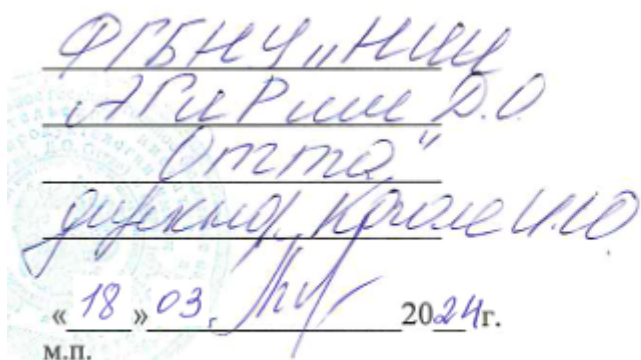 ФГБНУ „НИИ
АГиР им Д.О
Отта"
директор, Коган И.Ю
«18» 03, 2024г.
м.п.